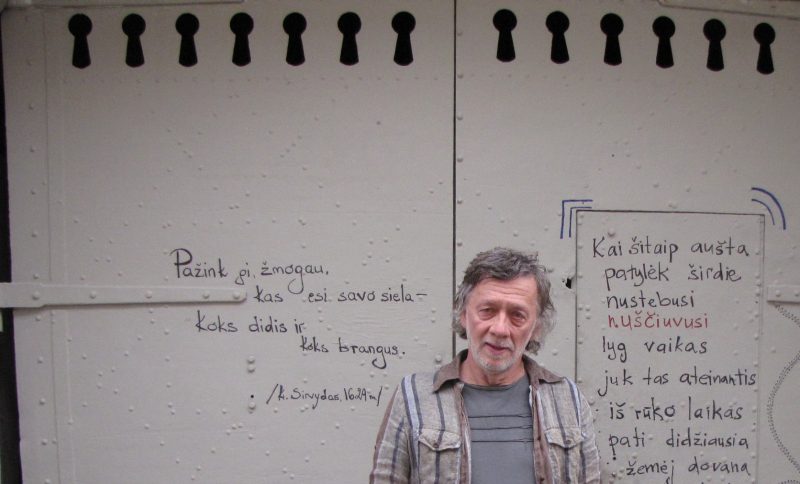 Pažink gi, žmogau,
kas esi savo siela –
koks didis ir
koks brangus.
/K. Sirvydas, 1629 m/
Kai šitaip aušta
patylėk širdie
nustebusi
nuščiuvusi
lyg vaikas
juk tas ateinantis
iš rūko laikas
pati didžiausia
žemėj dovana